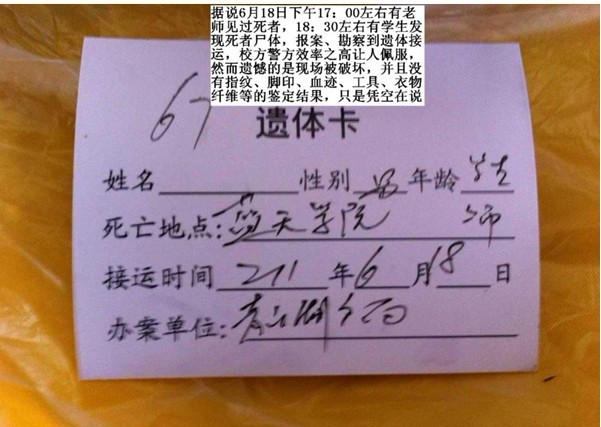 据说6月18日下午17：00左右有老
师见过死者，18：30左右有学生发
现死者尸体，报案、勘察到遗体接
运，校方警方效率之高让人佩服，
然而遗憾的是现场被破坏，并且没
有指纹、脚印、血迹、工具、衣物
纤维等的鉴定结果，只是凭空在说
67
遗体卡
姓名 性别 男 年龄 学生
死亡地点：蓝天学院
接运时间 211 年 6 月 18 日
办案单位：青山湖分局